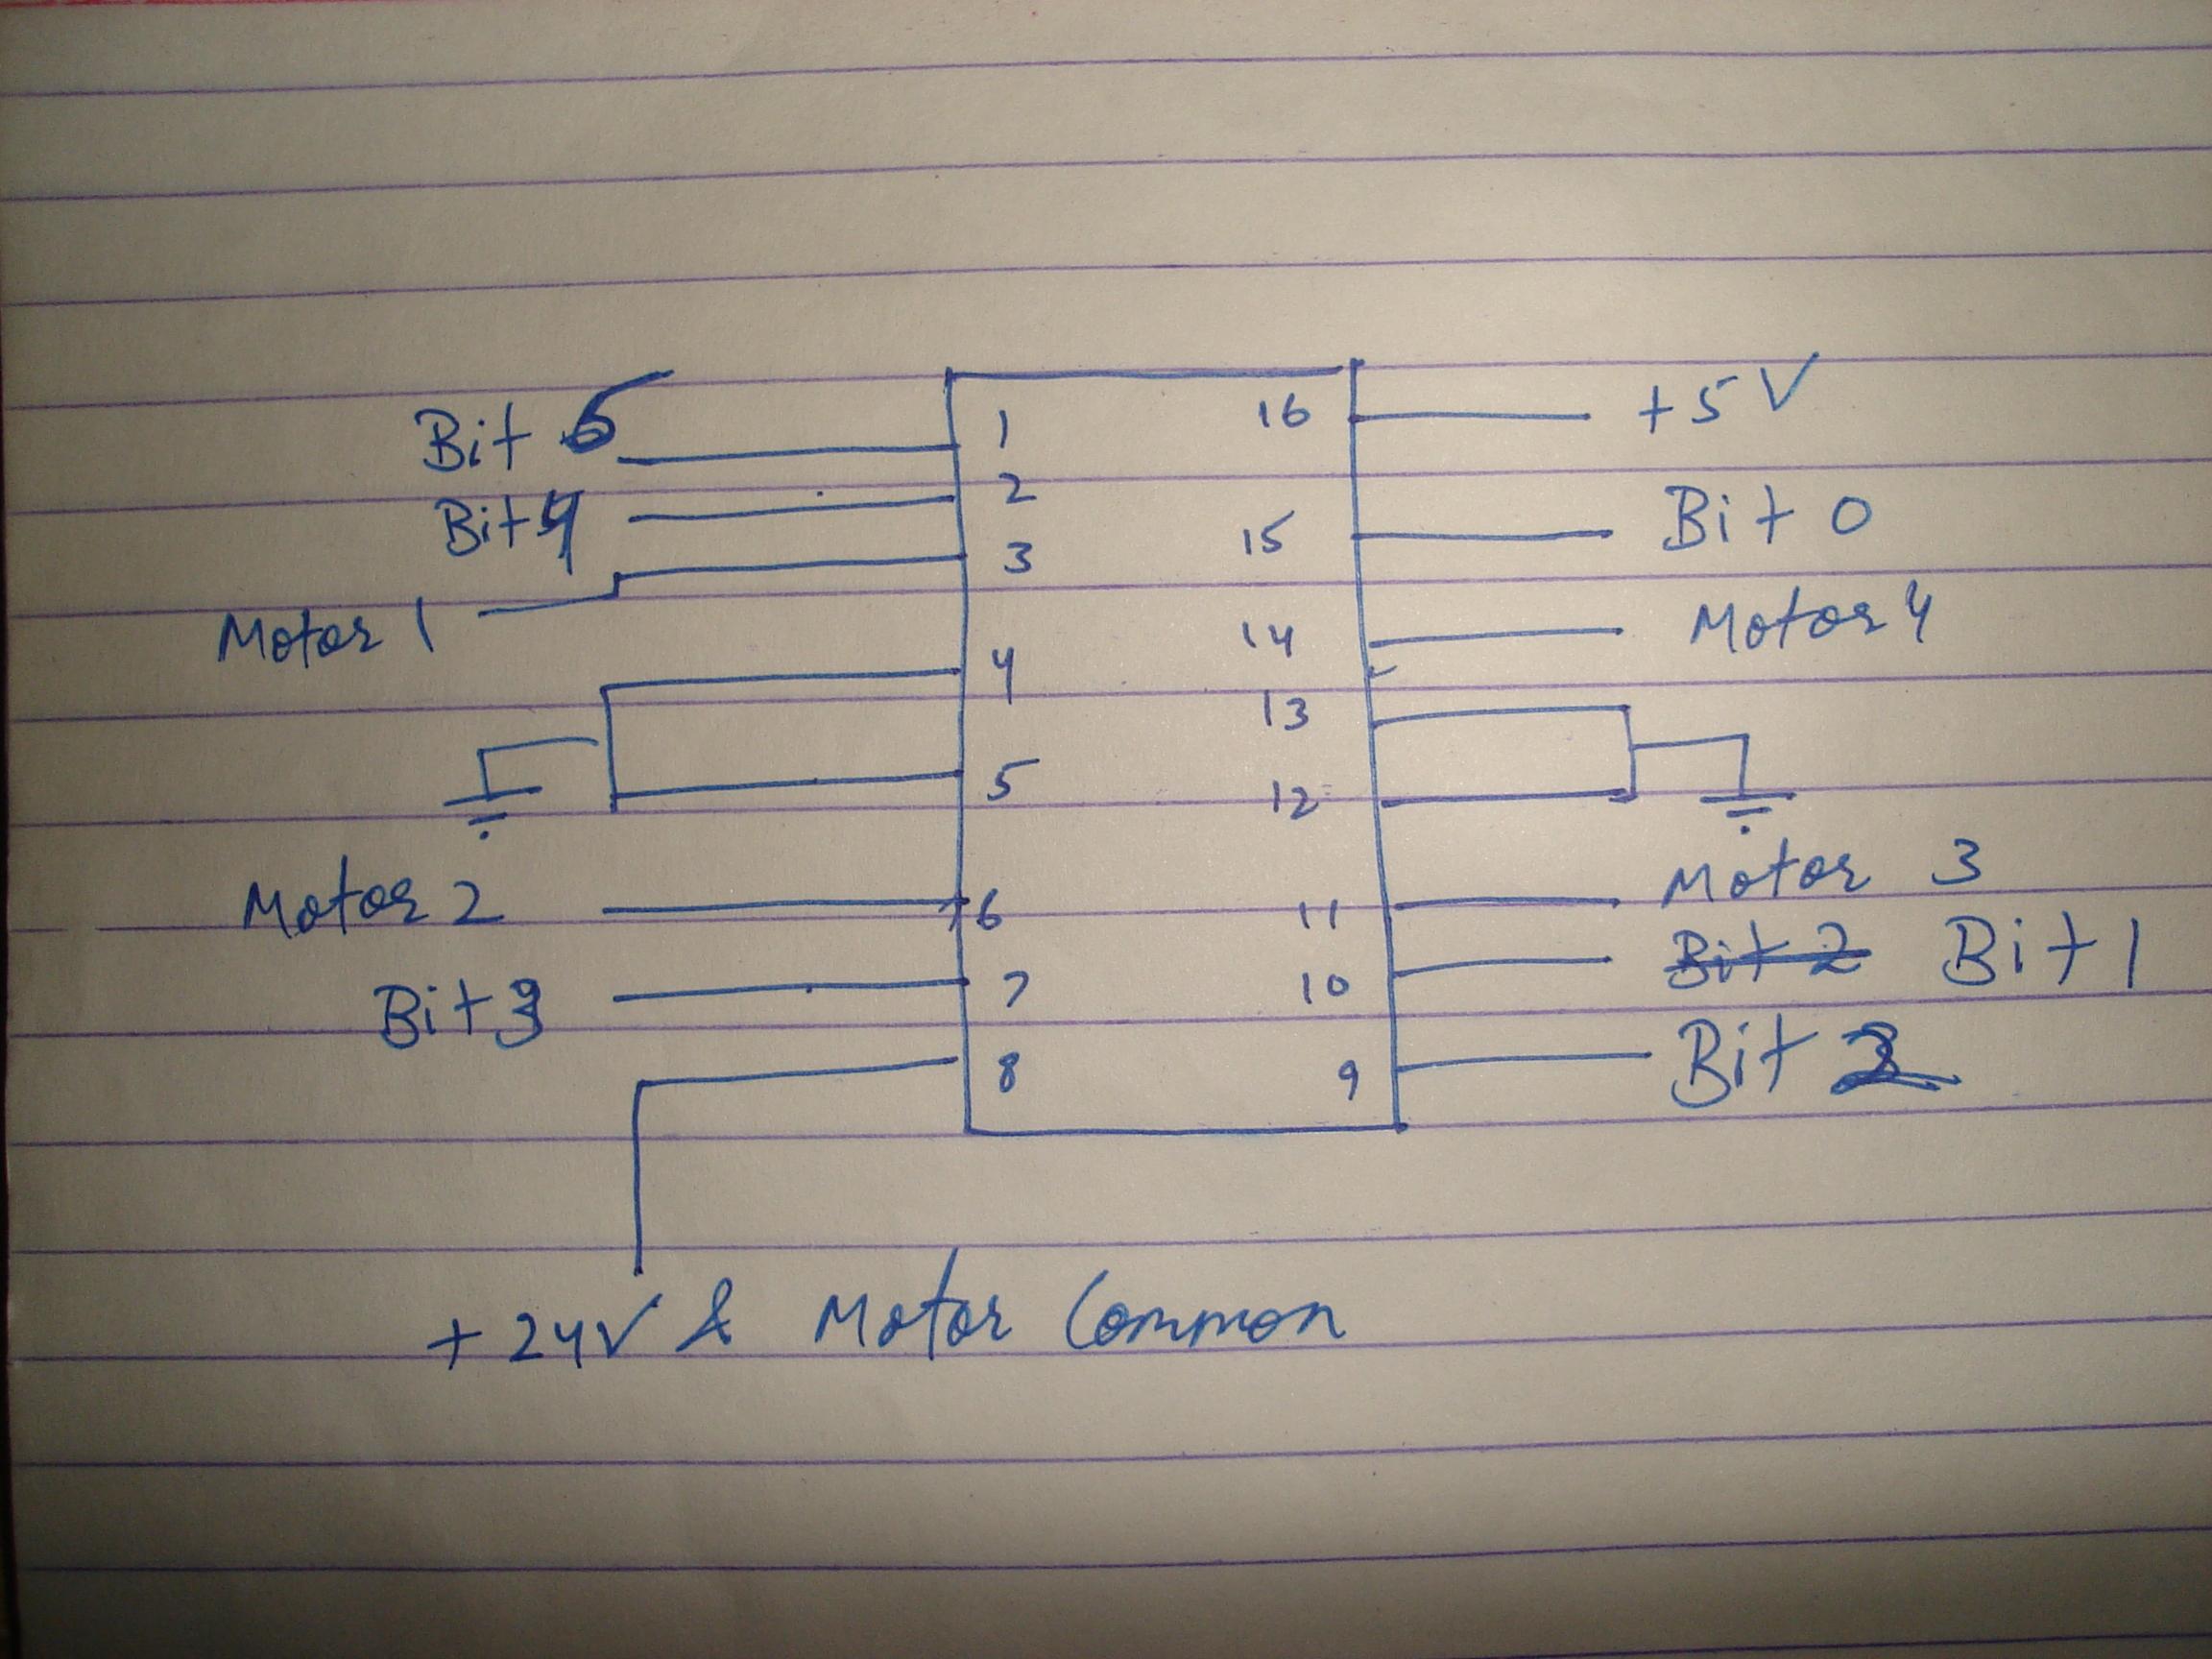 Bit 5 1 16 +5V
Bit 4 2
3 15 Bit 0
Motor 1 4 14 Motor 4
13
5 12
Motor 2 6 11 Motor 3
Bit 3 7 10 Bit 2 Bit 1
8 9 Bit 2
+24V & Motor Common